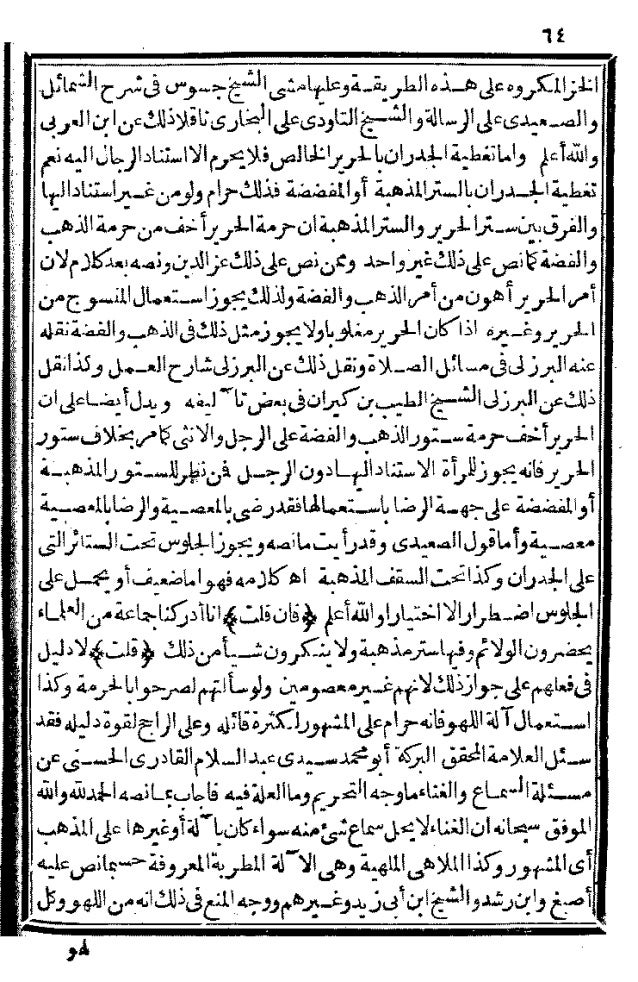 ٦٤
الخز المكروه على هذه الطريقة وعليها مشى الشيخ جسوس فى شرح الشمائل
والصعيدى على الرسالة والشيخ التاودى على البخارى ناقلا ذلك عن ابن العربى
والله أعلم وأما تغطية الجدران بالحرير الخالص فلا يحرم الا استناد الرجال اليه نعم
تغطية الجدران بالستر المذهبة أو المفضضة فذلك حرام ولو من غير استناد اليها
والفرق بين ستر الحرير والستر المذهبة ان حرمة الحرير أخف من حرمة الذهب
والفضة كما نص على ذلك غير واحد وممن نص على ذلك عز الدين ونصه بعد كلام لان
أمر الحرير أهون من أمر الذهب والفضة ولذلك يجوز استعمال المنسوج من
الحرير وغيره اذا كان الحرير مغلوبا ولا يجوز مثل ذلك فى الذهب والفضة نقله
عنه البرزلى فى مسائل الصلاة ونقل ذلك عن البرزلى شارح العمل وكذا نقل
ذلك عن البرزلى الشيخ الطيب بن كيران فى بعض تآليفه ويدل أيضا على ان
الحرير أخف حرمة ستور الذهب والفضة على الرجل والانثى كما مر بخلاف ستور
الحرير فانه يجوز للمرأة الاستناد اليها دون الرجل فمن نظر للستور المذهبة
أو المفضضة على جهة الرضا باستعمالها فقد رضى بالمعصية والرضا بالمعصية
معصية وأما قول الصعيدى وقد رأيت ما نصه ويجوز الجلوس تحت الستائر التى
على الجدران وكذا تحت السقف المذهبة اه كلامه فهو اما ضعيف أو يحمل على
الجلوس اضطرارا لا اختيارا والله أعلم ﴿فان قلت﴾ انا أدركنا جماعة من العلماء
يحضرون الولائم وفيها ستر مذهبة ولا ينكرون شيأ من ذلك ﴿قلت﴾ لا دليل
فى فعلهم على جواز ذلك لانهم غير معصومين ولو سألتهم لصرحوا بالحرمة وكذا
استعمال آلة اللهو فانه حرام على المشهور لكثرة قائله وعلى الراجح لقوة دليله فقد
سئل العلامة المحقق البركة أبو محمد سيدى عبد السلام القادرى الحسنى عن
مسئلة السماع والغناء ما وجه التحريم وما العلة فيه فاجاب بما نصه الحمد لله والله
الموفق سبحانه ان الغناء لا يحل سماع شئ منه سواء كان بآلة أو غيرها على المذهب
أى المشهور وكذا الملاهى الملهية وهى الآلة المطربة المعروفة حسبما نص عليه
أصبغ وابن رشد والشيخ ابن أبى زيد وغيرهم ووجه المنع فى ذلك انه من اللهو وكل
لهو